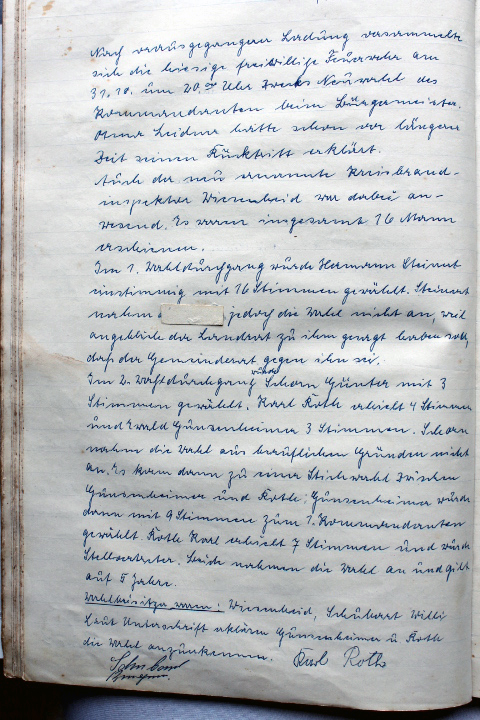 Nach vorausgegangener Ladung versammelte
sich die hiesige freiwillige Feuerwehr am
31.10. um 20.00 Uhr zwecks Neuwahl des
Kommandanten beim Bürgermeister.
Otmar Leidner hatte schon vor längerer
Zeit seinen Rücktritt erklärt.
Auch der neu ernannte Kreisbrand-
inspektor Wiesenheid war dabei an-
wesend. Es waren insgesamt 16 Mann
erschienen.
Im 1. Wahldurchgang wurde Hermann Steinert
einstimmig mit 16 Stimmen gewählt. Steinert
nahm jedoch die Wahl nicht an, weil
angeblich der Landrat zu ihm gesagt haben soll,
daß der Gemeinderat gegen ihn sei.
Im 2. Wahldurchgang wurde Schorn Günter mit 3
Stimmen gewählt. Karl Roth erhielt 4 Stimmen
und Ewald Günzenheimer 3 Stimmen. Schorn
nahm die Wahl aus beruflichen Gründen nicht
an. Es kam dann zu einer Stichwahl zwischen
Günzenheimer und Roth; Günzenheimer wurde
dann mit 9 Stimmen zum 1. Kommandanten
gewählt. Roth Karl erhielt 7 Stimmen und wurde
Stellvertreter. Beide nahmen die Wahl an und gilt
auf 5 Jahre.
Wahlbeisitzer waren: Wiesenheid, Schubart Willi
Laut Unterschrift erklären Günzenheimer u Roth
die Wahl anzuerkennen. Karl Roth